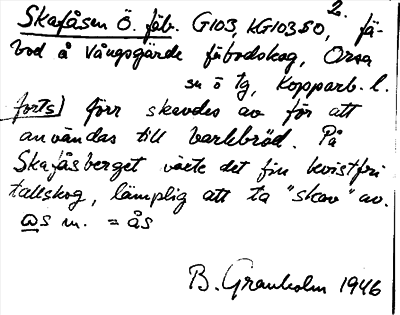 Skafåsen Ö. fäb. G103, KG10350, 2. fä-
bod å Vångsgärde fäbodskog, Orsa
sn ö tg, Kopparb. l.
forts) förr skavdes av för att
användas till barkbröd. På
Skafåsberget växte det fin kvistfri
tallskog, lämplig att ta "skav" av.
ås m. = ås
B. Granholm 1946